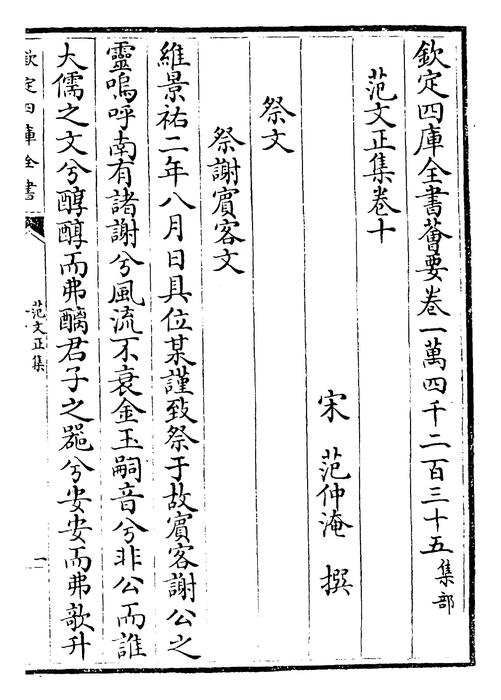 欽定四庫全書薈要卷一萬四千二百三十五集部
范文正集卷十
宋 范仲淹 撰
祭文
祭謝賓客文
維景祐二年八月日具位某謹致祭于故賓客謝公之
靈嗚呼南有諸謝兮風流不衰金玉嗣音兮非公而誰
大儒之文兮醇醇而弗醨君子之器兮安安而弗欹升
欽定四庫全書
范文正集